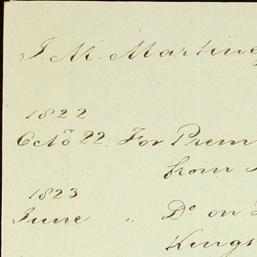 J. M. Martine
1822
Octo 22. For Prem
from
1823
June " Do on
Kings